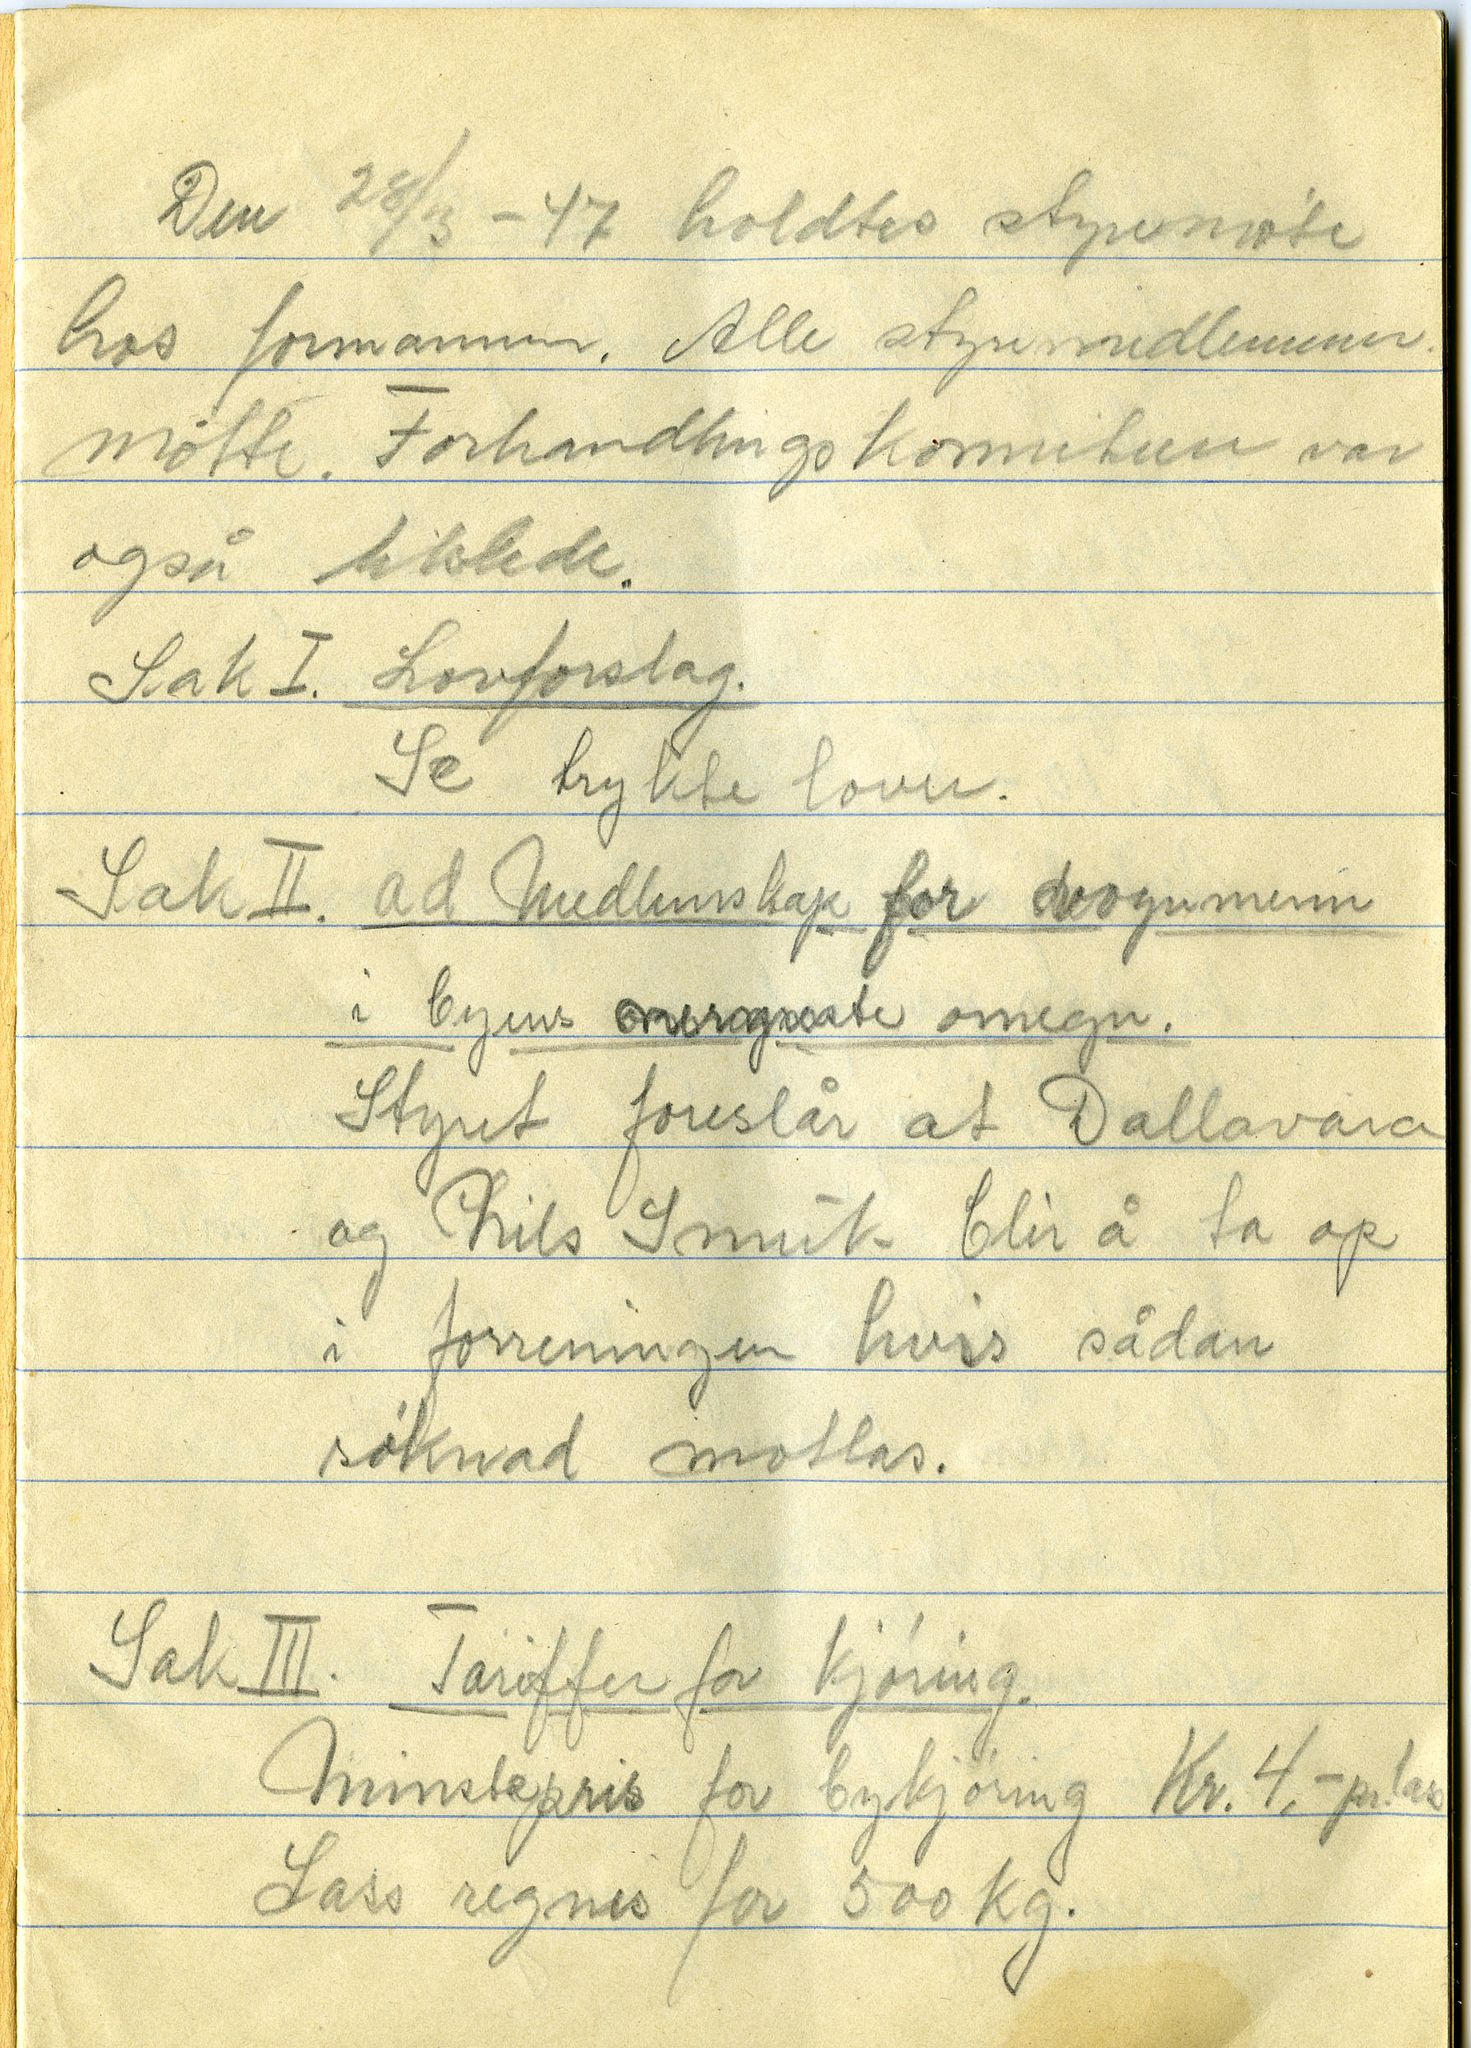 Den 28/3 – 47 holdtes styremøte
hos formannen. Alle styremedlemmer
møtte. Forhandlingskomiteen var
også tilstede.
Sak I. Lovforslag.
Se trykte lover.
Sak II. ad Medlemskap for vognmenn
i byens omegn.
Styret foreslår at Dallavara
og Nils blir å ta op
i forreningen hvis sådan
söknad mottas.
Sak III. Tariffer for kjöring.
Minstepris for bykjöring Kr. 4,– pr. las
Lass regnes for 500 kg.